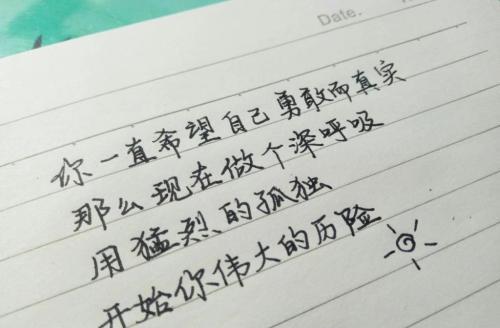 Date.
你一直希望自己勇敢而真实
那么现在做个深呼吸
用猛烈的孤独
开始你伟大的历险